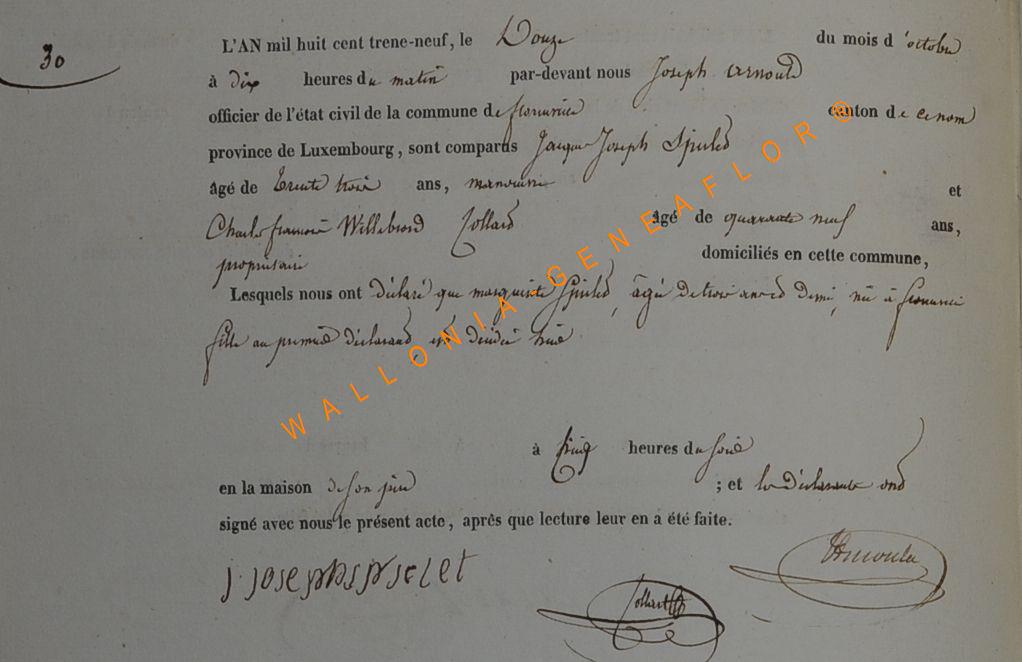 30
L'AN mil huit cent trene-neuf, le Douze du mois d'octobre
à dix heures du matin par-devant nous Joseph Arnould
officier de l'état civil de la commune de florenville canton de ce nom
province de Luxembourg, sont comparus Jacques Joseph Spirlet
âgé de trente trois ans, manoeuvre et
Charles françois Willebrord Collard âgé de quarante neuf ans,
propriétaire domiciliés en cette commune,
Lesquels nous ont déclaré que marguerite Spirlet, âgée de trois ans et demi, née à
fille au premier déclarant, est décédée hier
à cinq heures du soir
en la maison de son père ; et les déclarants ont
signé avec nous le présent acte, après que lecture leur en a été faite.
J Joseph Collard Arnould
WALLONIA-GENEAFLOR®